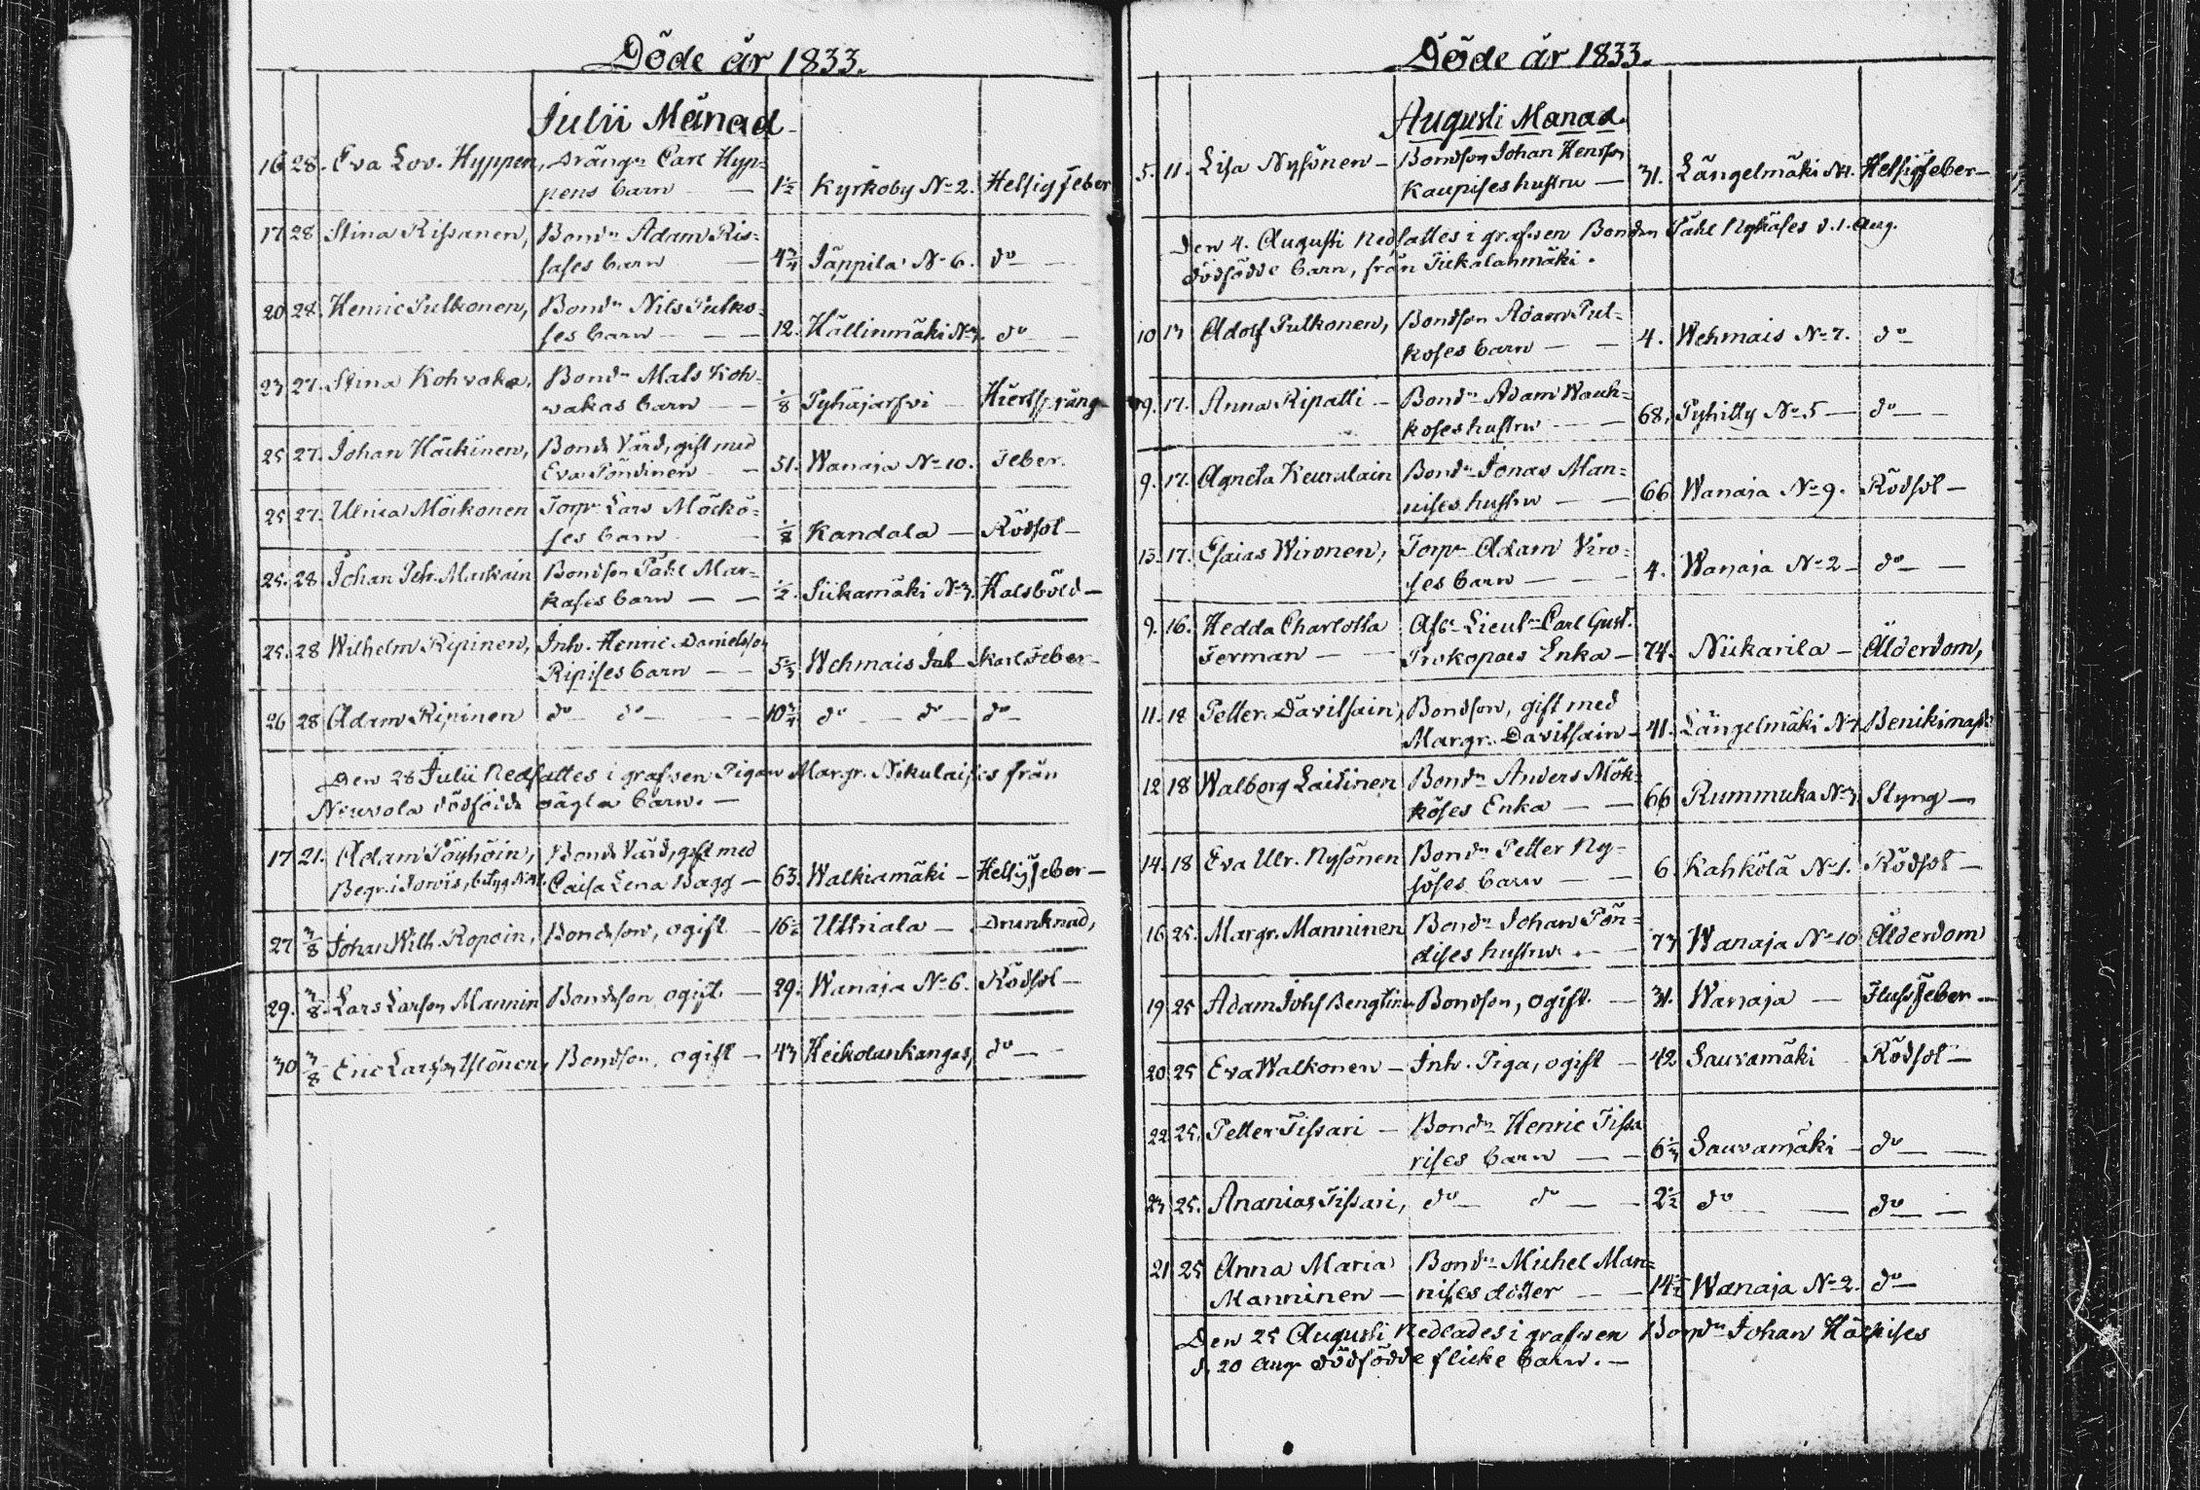 Döde år 1833.
Julii Månad
16 28. Eva Lov. Hyppen, drängn Carl Hyp=
pens barn — 1½ Kyrkoby No 2. Hetsig feber
17 28 Stina Rissanen, Bondn Adam Ris=
sases barn — 4¾ Jäppilä No 6. do —
20 28. Henric Pulkonen, Bondn Nils Pulko=
ses barn — — 12. Hällinmäki No 3. do —
23 27. Stina Kohvaka, Bondn Mats Koh=
vakas barn — — ⅛ Pyhäjärfvi — Hiertsprång
25 27. Johan Häckinen, Bond Värd, gift med
Eva Pöndinen — 51. Wanaja No 10. Feber.
25 27. Ulrica Möckonen Torpn Lars Möckö=
ses barn — Kandala — Rödsot —
25. 28. Johan Pehr Markain Bondson Påhl Mar=
kases barn — — ½. Siikamäki No 3. Halsböld —
25. 28 Wilhelm Ripinen, Inh. Henric Danielsson
Ripises barn — — Wehmais Inh — Skarl. Feber —
26 28 Adam Ripinen do — do — — 10¾ do — do — do —
Den 28 Julii Nedsattes i grafven Pigan Margr. Nikulaises från
Neuvola dödfödde oägta barn. —
17 21. Adam Pöyhöin, Bond Värd, gift med
Begr. i Jorois, Caisa Lena Bagg — 63. Walkiamäki — Hetsig feber —
27 3/8 Johan Wilh. Ropoin, Bondeson, ogift — 16½ Uttriala — Drunknad,
29. 3/8. Lars Larson Mannin Bondeson ogift. — 29. Wanaja No 6. Rödsot —
30 3/8 Eric Larsson Ylönen, Bondson, ogift — 43 Heikolankangas, do —
Döde år 1833.
Augusti Månad.
5. 11. Lisa Nysönen — Bondson Johan Henrson
Kaupises hustru — 31. Längelmäki No 1. Hetsig feber —
Den 4. Augusti Nedsattes i grafven Bondn Påhl Nyhäses d. 1. Aug.
dödfödde barn, från Tiikalanmäki.
10 13 Adolf Pulkonen, Bondson Adam Pul=
koses barn — — 4. Wehmais No 7. do —
9. 17. Anna Ripatti — Bondn Adam Wauh=
koses hustru — — 68. Pyhitty No 5 — do —
9. 17. Agneta Keurulain Bondn Jonas Man=
nises hustru — — 66 Wanaja No 9. Rödsot —
13. 17. Esaias Wironen, Torpn Adam Viro=
ses barn — — — 4. Wanaja No 2 — do —
9. 16. Hedda Charlotta Afsk. Lieutn Carl Gust.
Ferman — — Prokopaei Enka — 74. Niekarila — Ålderdom,
11. 18 Petter Davitsain, Bondson, gift med
Margr. Davitsain — 41. Längelmäki No 7.
12 18 Walborg Laitinen Bondn Anders Möh=
köses Enka — — 66 Rummuka No 3. Styng —
14. 18 Eva Ulr. Nysönen Bondn Petter Ny=
söses barn — — 6. Kahkölä No 1. Rödsot —
16 25. Margr. Manninen Bondn Johan Pön=
dises hustru. — 73 Wanaja No 10 Ålderdom
19 25 Adam Johss Bengtin Bondson, ogift. — 31. Wanaja — Fluss feber —
20 25 Eva Walkonen — Inh. Piga, ogift — 42. Sauvamäki Rödsot —
22. 25. Petter Tissari — Bondn Henric Tissa
rises barn — — Sauvamäki — do —
23 25. Ananias Tissari, do — do — 2½ do — do —
21 25 Anna Maria Bondn Michel Man=
Manninen — nises dotter — — 14½ Wanaja No 2. do —
Den 25 Augusti Nedlades i grafven Bondn Johan Häckises
d. 20 Aug. dödfödde flicke barn. —